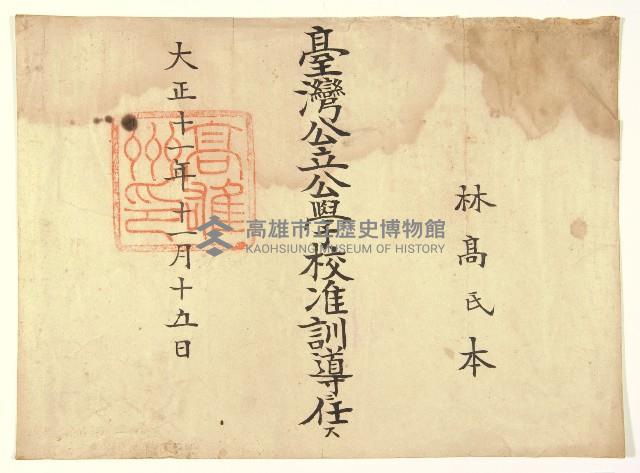 林髙氏本
臺灣公立公學校准訓導ニ任ス
大正十一年十一月十五日
高雄州印
高雄市立歷史博物館
KAOHSIUNG MUSEUM OF HISTORY